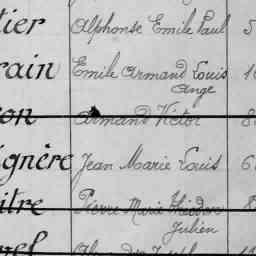 tier Alphonse Emile Paul 5
rain Emile Armand Louis 1
Ange
on Armand Victor 8
gnère Jean Marie Louis 6
itre Pierre Marie
Julien